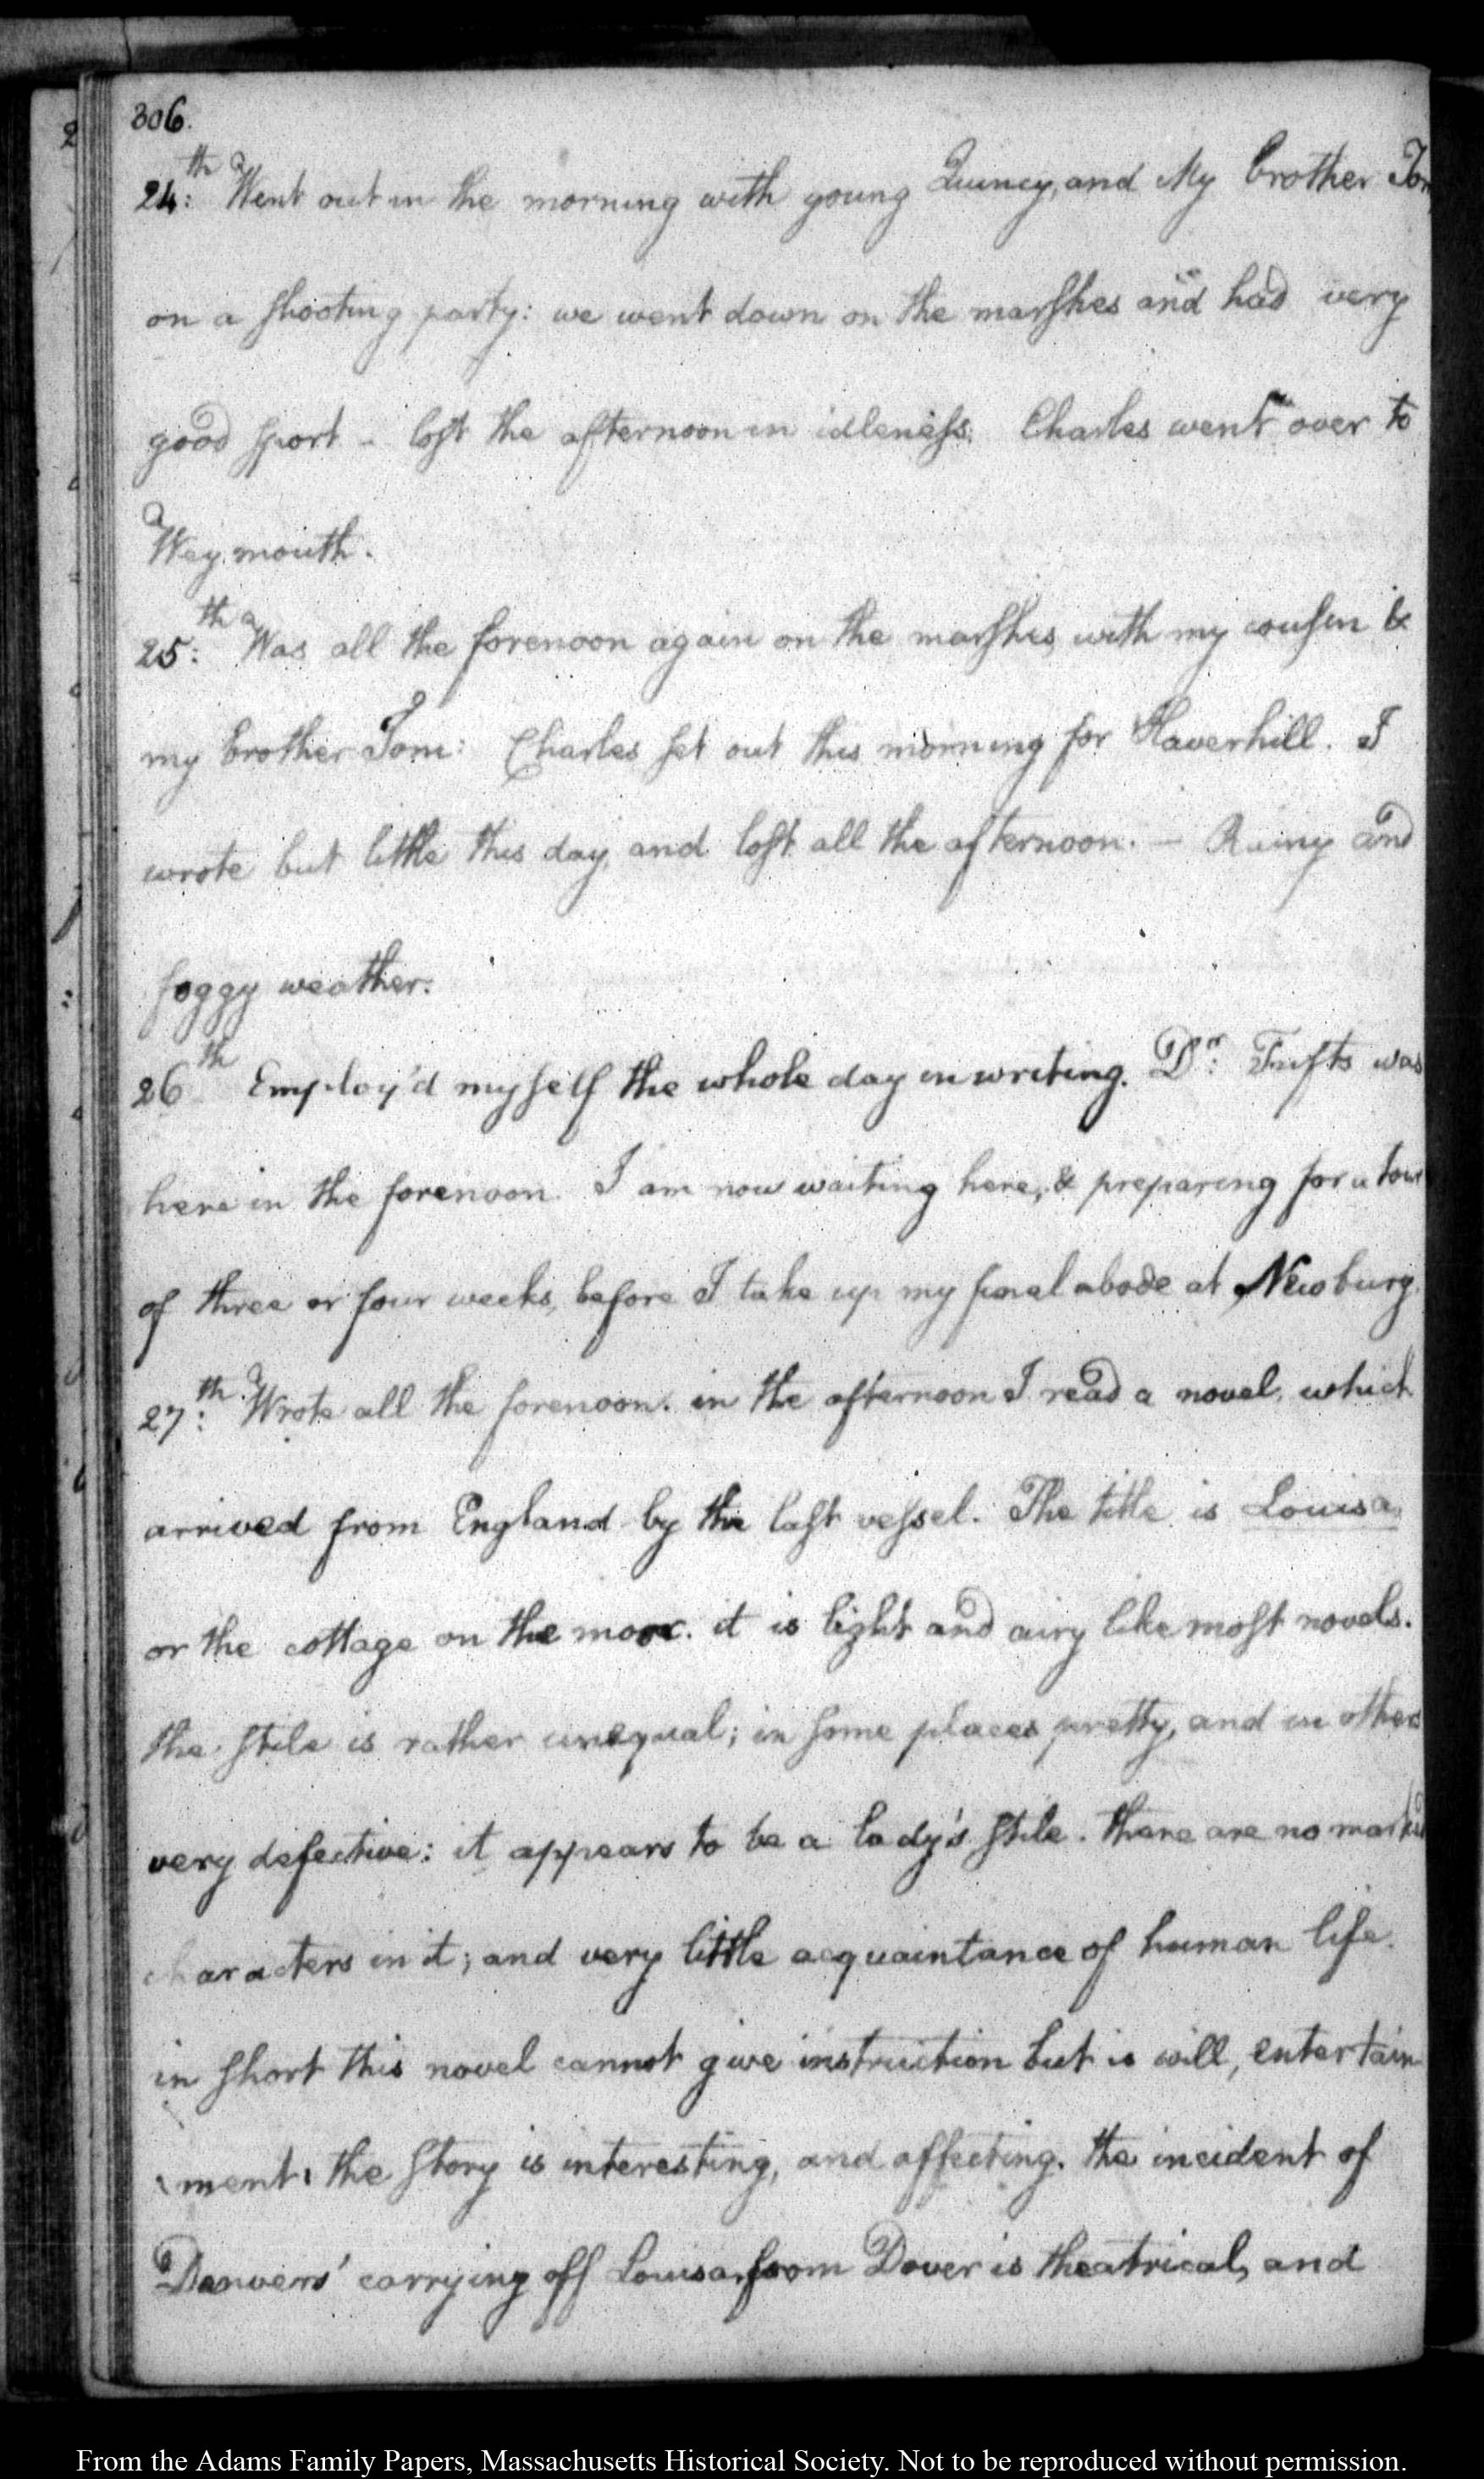 306.
24:th Went out in the morning with young Quincy, and My brother Tom
on a shooting party: we went down on the marshes and had very
good sport - lost the afternoon in idleness. Charles went over to
Weymouth.
25:th Was all the forenoon again on the marshes with my cousin &
my brother Tom: Charles set out this morning for Haverhill. I
wrote but little this day, and lost all the afternoon. — Rainy and
foggy weather.
26th Employ'd myself the whole day in writing. Dr: Tufts was
here in the forenoon. I am now waiting here, & preparing for a tour
of three or four weeks, before I take up my final abode at Newbury.
27:th Wrote all the forenoon. in the afternoon I read a novel, which
arrived from England by the last vessel. The title is Louisa,
or the cottage on the moor. it is light and airy like most novels.
the stile is rather unequal; in some places pretty, and in others
very defective: it appears to be a lady's stile. there are no marked
characters in it; and very little acquaintance of human life.
in short this novel cannot give instruction but is will, entertain
ment. the story is interesting, and affecting. the incident of
Danvers' carrying off Louisa, from Dover is theatrical, and
From the Adams Family Papers, Massachusetts Historical Society. Not to be reproduced without permission.